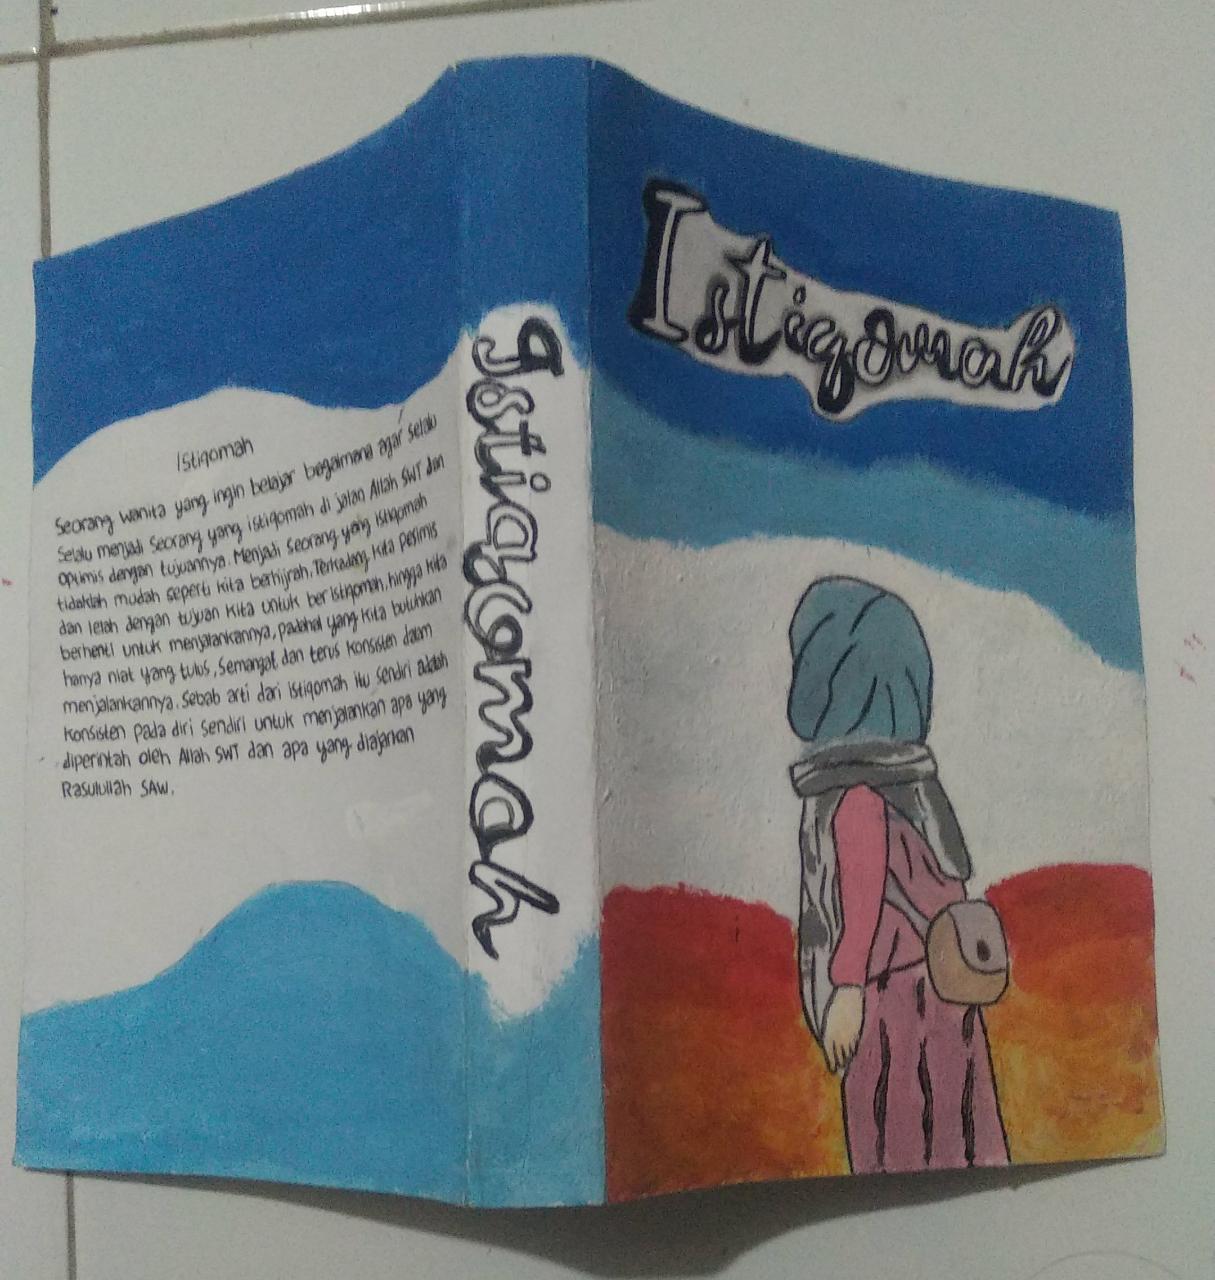 Istiqomah
Istiqomah
Istiqomah
Seorang wanita yang ingin belajar bagaimana agar selalu
Selalu menjadi seorang yang istiqomah di jalan Allah SWT dan
optimis dengan tujuannya. Menjadi seorang yang istiqomah
tidaklah mudah seperti kita berhijrah. Terkadang kita pesimis
dan lelah dengan tujuan kita untuk beristiqomah, hingga kita
berhenti untuk menjalankannya, padahal yang kita butuhkan
hanya niat yang tulus, semangat dan terus konsisten dalam
menjalankannya. Sebab arti dari istiqomah itu sendiri adalah
konsisten pada diri sendiri untuk menjalankan apa yang
diperintah oleh Allah SWT dan apa yang diajarkan
Rasulullah SAW.